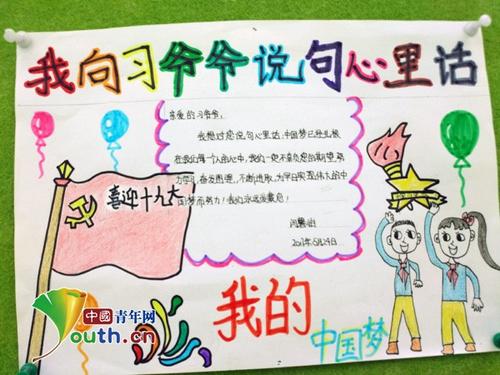 我向习爷爷说句心里话
亲爱的习爷爷，
我想对您说句心里话：中国梦已经扎根
在我们每个人的心中，我们一定不辜负您的期望，努
力学习，奋发图强，不断进取，为早日实现伟大的中
国梦而努力！我们永远爱戴您！
2017年5月29日
喜迎十九大！
我的
中国梦
中国青年网
Youth.cn